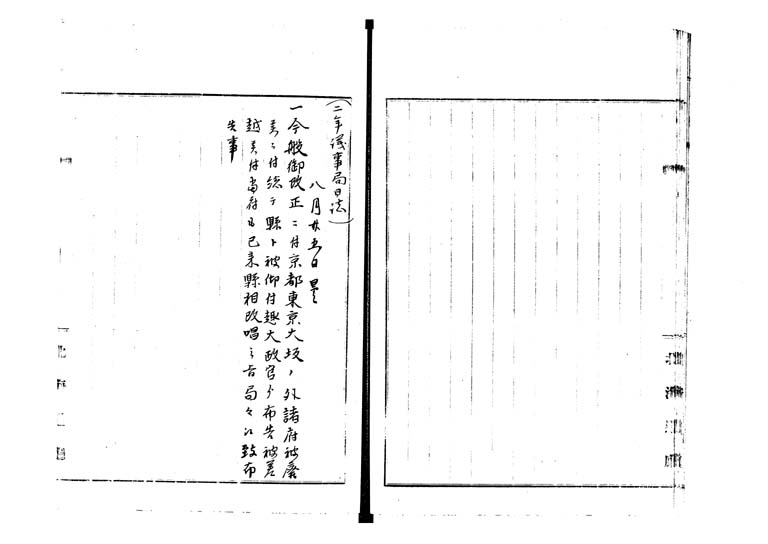 (二年議事局日誌)
八月廿五日 曇
一今般御改正ニ付京都東京大坂ノ外諸府被廃
ニ付総テ縣ト被仰付趣大政官ゟ布告被差
越候付当府も已来縣相改唱之旨局々江致布
告事